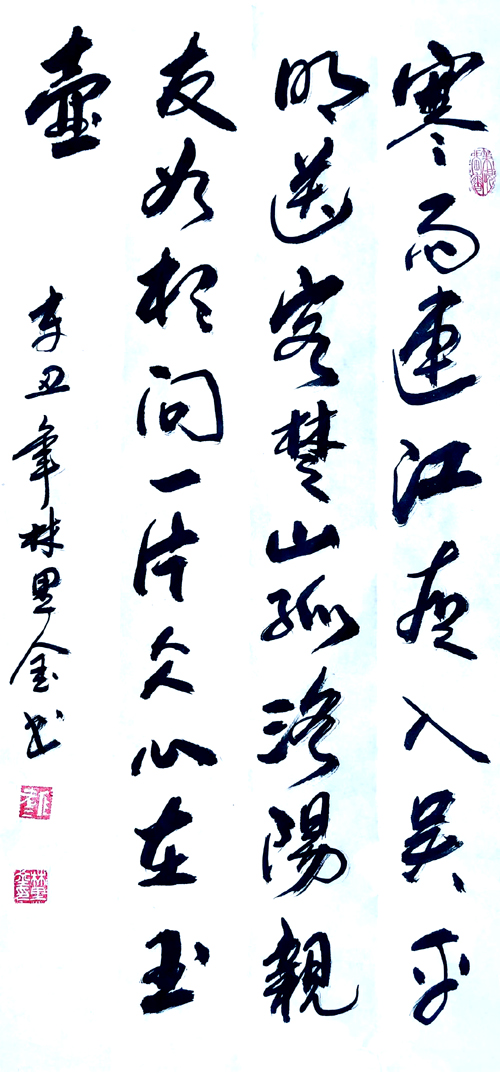 寒雨連江夜入吳平
明送客楚山孤洛陽親
友如相問一片仌心在玉
壺
辛丑年林恩金书